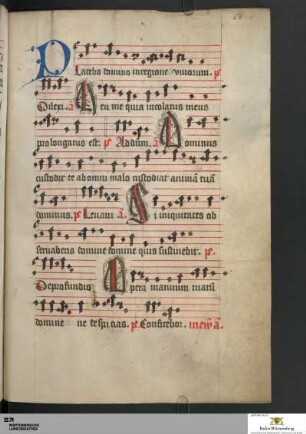 Placebo domino in regione vivorum. ps
Dilexi. a Heu me quia incolatus meus
prolongatus est. ps Ad dnm. a Dominus
custodit te ab omni malo custodiat animā tuā
dominus. ps Levavi a Si iniquitates ob
servaberis domine domine quis sustinebit. ps.
De profundis Opera manuum tuarū
domine ne despicias. ps Confitebor.